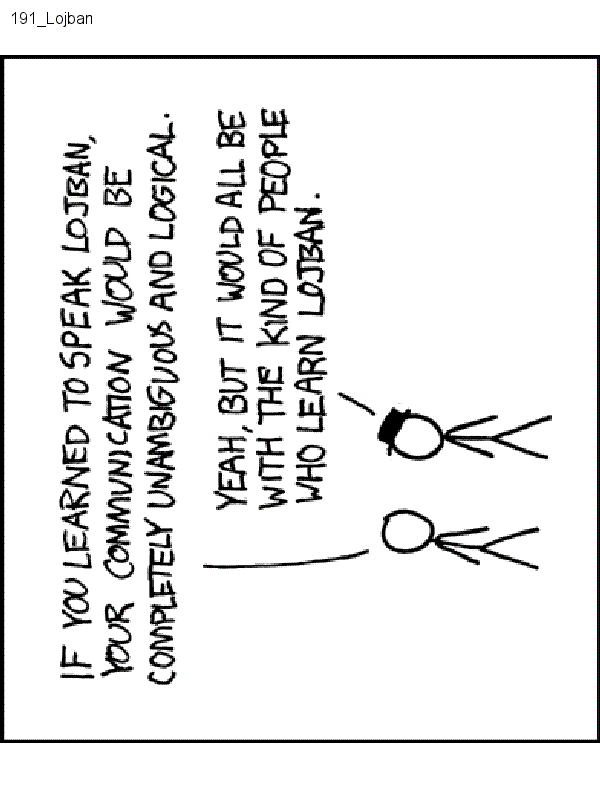 191_Lojban
IF YOU LEARNED TO SPEAK LOJBAN,
YOUR COMMUNICATION WOULD BE
COMPLETELY UNAMBIGUOUS AND LOGICAL.
YEAH, BUT IT WOULD ALL BE
WITH THE KIND OF PEOPLE
WHO LEARN LOJBAN.